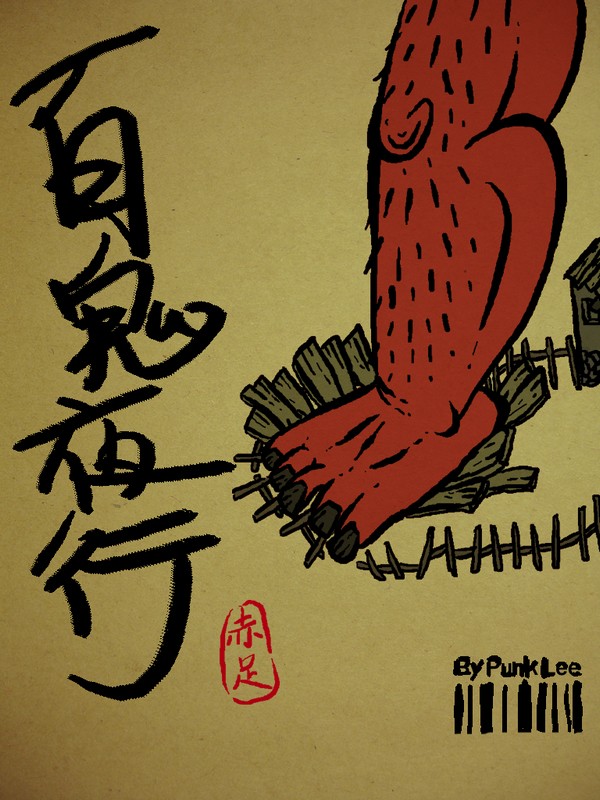 百鬼夜行
赤足
By Punk Lee